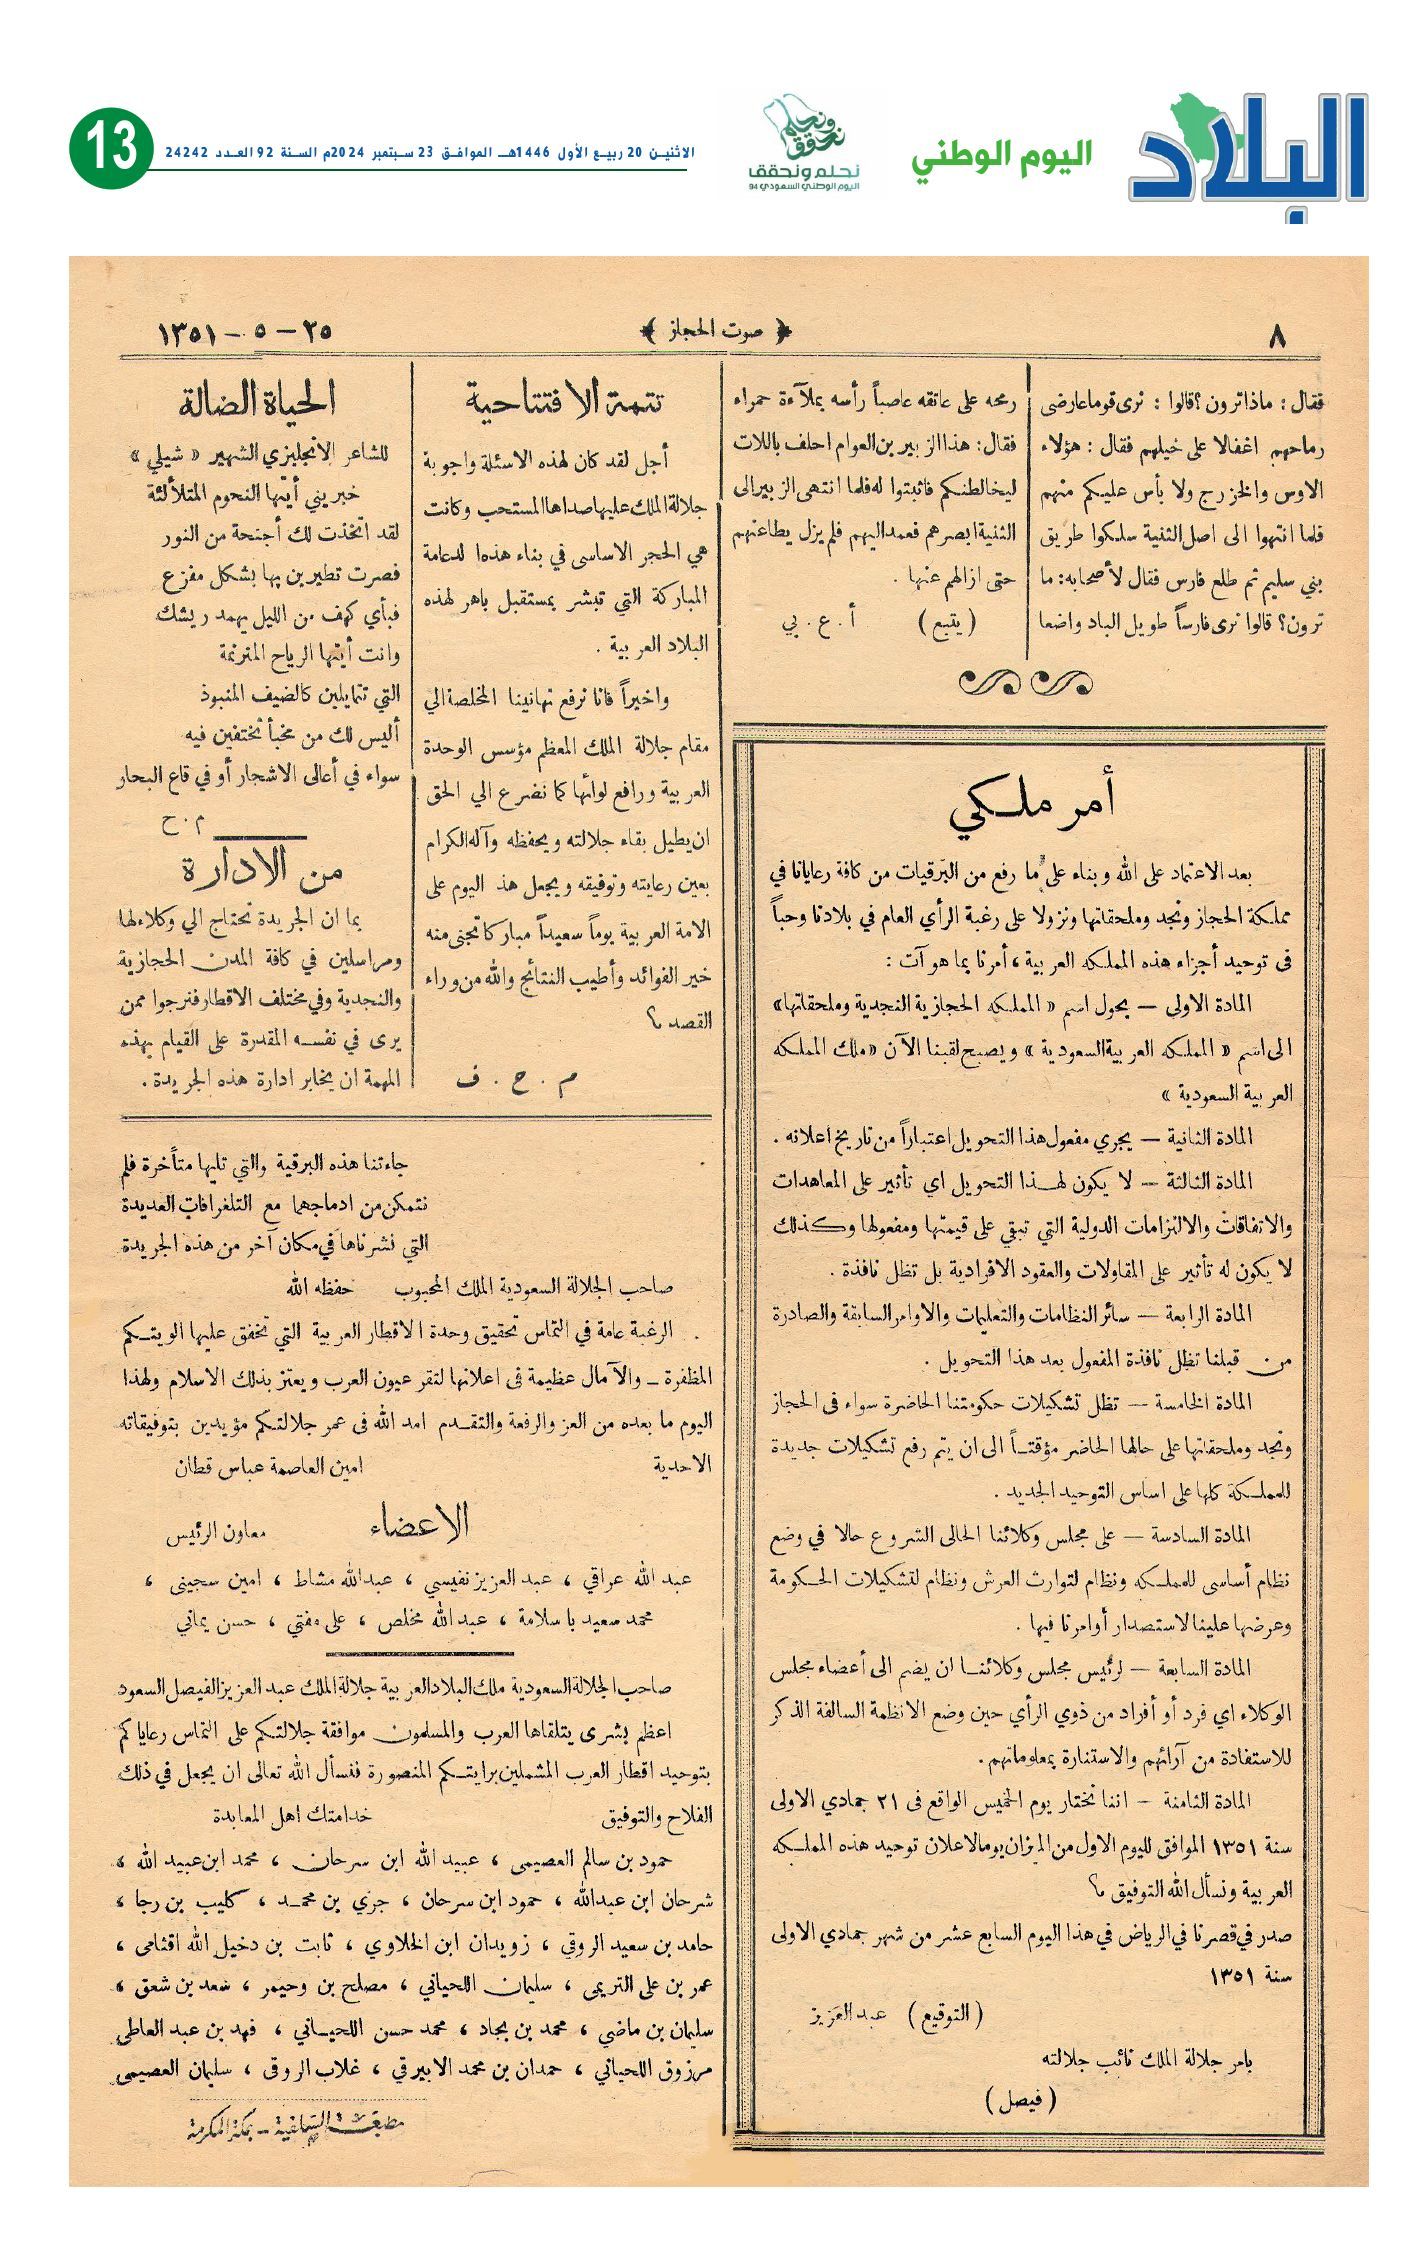 البلاد
اليوم الوطني
نحلم ونحقق
نحلم ونحقق
اليوم الوطني السعودي 94
الاثنين 20 ربيع الأول 1446هـ الموافق 23 سبتمبر 2024م السنة 92 العدد 24242
13
٨
﴿ صوت الحجاز ﴾
٢٥ – ٥ – ١٣٥١
فقال : ماذاترون ؟ قالوا : نرى قوماً عارضي
رماحهم اغفالا على خيلهم فقال : هؤلاء
الاوس والخزرج ولا بأس عليكم منهم
فلما انتهوا الى اصل الثنية سلكوا طريق
بني سليم ثم طلع فارس فقال لأصحابه : ما
ترون؟ قالوا نرى فارساً طويل الباد واضعا
رمحه على عاتقه عاصباً رأسه بملآءة حمراء
فقال : هذا الزبير بن العوام احلف باللات
ليخالطنكم فاثبتوا له فلما انتهى الزبير الى
الثنية ابصرهم فعمد اليهم فلم يزل يطاعنهم
حتى ازالهم عنها .
( يتبع ) أ . ع . بي
أمر ملكي
بعد الاعتماد على الله وبناء على ما رفع من البرقيات من كافة رعايانا في
مملكة الحجاز ونجد وملحقاتها ونزولا على رغبة الرأي العام في بلادنا وحباً
فى توحيد أجزاء هذه المملكه العربية ، أمرنا بما هو آت :
المادة الاولى – يحول اسم « المملكه الحجازية النجدية وملحقاتها»
الى اسم « المملكه العربية السعودية » ويصبح لقبنا الآن «ملك المملكه
العربية السعودية »
المادة الثانية – يجري مفعول هذا التحويل اعتباراً من تاريخ اعلانه .
المادة الثالثة – لا يكون لهذا التحويل اي تأثير على المعاهدات
والاتفاقات والالتزامات الدولية التي تبقي على قيمتها ومفعولها وكذلك
لا يكون له تأثير على المقاولات والعقود الافرادية بل تظل نافذة .
المادة الرابعة – سائر النظامات والتعليمات والاوامر السابقة والصادرة
من قبلنا تظل نافذة المفعول بعد هذا التحويل .
المادة الخامسة – تظل تشكيلات حكومتنا الحاضرة سواء فى الحجاز
ونجد وملحقاتها على حالها الحاضر مؤقتاً الى ان يتم رفع تشكيلات جديدة
للمملكة كلها على اساس التوحيد الجديد .
المادة السادسة – على مجلس وكلائنا الحالى الشروع حالا في وضع
نظام أساسى للمملكه ونظام لتوارث العرش ونظام لتشكيلات الحكومة
وعرضها علينا لاستصدار أوامرنا فيها .
المادة السابعة – لرئيس مجلس وكلائنا ان يضم الى أعضاء مجلس
الوكلاء اي فرد أو أفراد من ذوي الرأي حين وضع الانظمة السالفة الذكر
للاستفادة من آرائهم والاستنارة بمعلوماتهم .
المادة الثامنة – اننا نختار يوم الخميس الواقع فى ٢١ جمادي الاولى
سنة ١٣٥١ الموافق لليوم الاول من الميزان يوماً لاعلان توحيد هذه المملكه
العربية ونسأل الله التوفيق ؟
صدر في قصرنا في الرياض في هذا اليوم السابع عشر من شهر جمادي الاولى
سنة ١٣٥١
( التوقيع ) عبد العزيز
بامر جلالة الملك نائب جلالته
( فيصل )
تتمة الافتتاحية
أجل لقد كان لهذه الاسئلة واجوبة
جلالة الملك عليها صداها المستحب وكانت
هي الحجر الاساسى في بناء هذه الدعامة
المباركة التي تبشر بمستقبل باهر لهذه
البلاد العربية .
واخيراً فانا نرفع تهانينا المخلصة الي
مقام جلالة الملك المعظم مؤسس الوحدة
العربية ورافع لوائها كما نضرع الي الحق
ان يطيل بقاء جلالته ويحفظه وآله الكرام
بعين رعايته وتوفيقه ويجعل هذ اليوم على
الامة العربية يوماً سعيداً مباركا تجنى منه
خير الفوائد وأطيب النتائج والله من وراء
القصد ؟
م . ح . ف
الحياة الضالة
للشاعر الانجليزي الشهير « شيلي »
خبريني أيتها النجوم المتلألئة
لقد اتخذت لك أجنحة من النور
فصرت تطيرين بها بشكل مفزع
فبأي كهف من الليل يهمد ريشك
وانت أيتها الرياح المترنمة
التي تتمايلين كالضيف المنبوذ
أليس لك من مخبأ تختفين فيه
سواء في أعالى الاشجار أو في قاع البحار
م . ح
من الادارة
بما ان الجريدة تحتاج الي وكلاء لها
ومراسلين في كافة المدن الحجازية
والنجدية وفي مختلف الاقطار فنرجوا ممن
يرى في نفسه المقدرة على القيام بهذه
المهمة ان يخابر ادارة هذه الجريدة .
جاءتنا هذه البرقية والتي تليها متأخرة فلم
نتمكن من ادماجهما مع التلغرافات العديدة
التي نشرناها في مكان آخر من هذه الجريدة
صاحب الجلالة السعودية الملك المحبوب حفظه الله
الرغبة عامة في التماس تحقيق وحدة الاقطار العربية التي تخفق عليها الويتكم
المظفرة – والآمال عظيمة فى اعلانها لتقر عيون العرب ويعتز بذلك الاسلام ولهذا
اليوم ما بعده من العز والرفعة والتقدم امد الله فى عمر جلالتكم مؤيدين بتوفيقاته
الاحدية امين العاصمة عباس قطان
الاعضاء معاون الرئيس
عبد الله عراقي ، عبد العزيز نفيسي ، عبدالله مشاط ، امين سجينى ،
محمد سعيد با سلامة ، عبد الله مخلص ، على مفتي ، حسن يماني
صاحب الجلالة السعودية ملك البلاد العربية جلالة الملك عبد العزيز الفيصل السعود
اعظم بشرى يتلقاها العرب والمسلمون موافقة جلالتكم على التماس رعاياكم
بتوحيد اقطار العرب المشملين برايتكم المنصورة فنسأل الله تعالى ان يجعل في ذلك
الفلاح والتوفيق خدامتك اهل المعابدة
حمود بن سالم العصيمى ، عبيد الله ابن سرحان ، محمد ابن عبيد الله ،
شرحان ابن عبدالله ، حمود ابن سرحان ، جزي بن محمد ، كليب بن رجا ،
حامد بن سعيد الروقي ، زويدان ابن الخلاوي ، ثابت بن دخيل الله اقثامى ،
عمر بن على التريمى ، سليمان اللحياني ، مصلح بن وحيمر ، سعد بن شعق ،
سليمان بن ماضي ، محمد بن بجاد ، محمد حسن اللحياني ، فهد بن عبد العاطى
مرزوق اللحياني ، حمدان بن محمد الابيرقي ، غلاب الروقى ، سليمان العصيمى
مطبعة السلفية – بمكة المكرمة